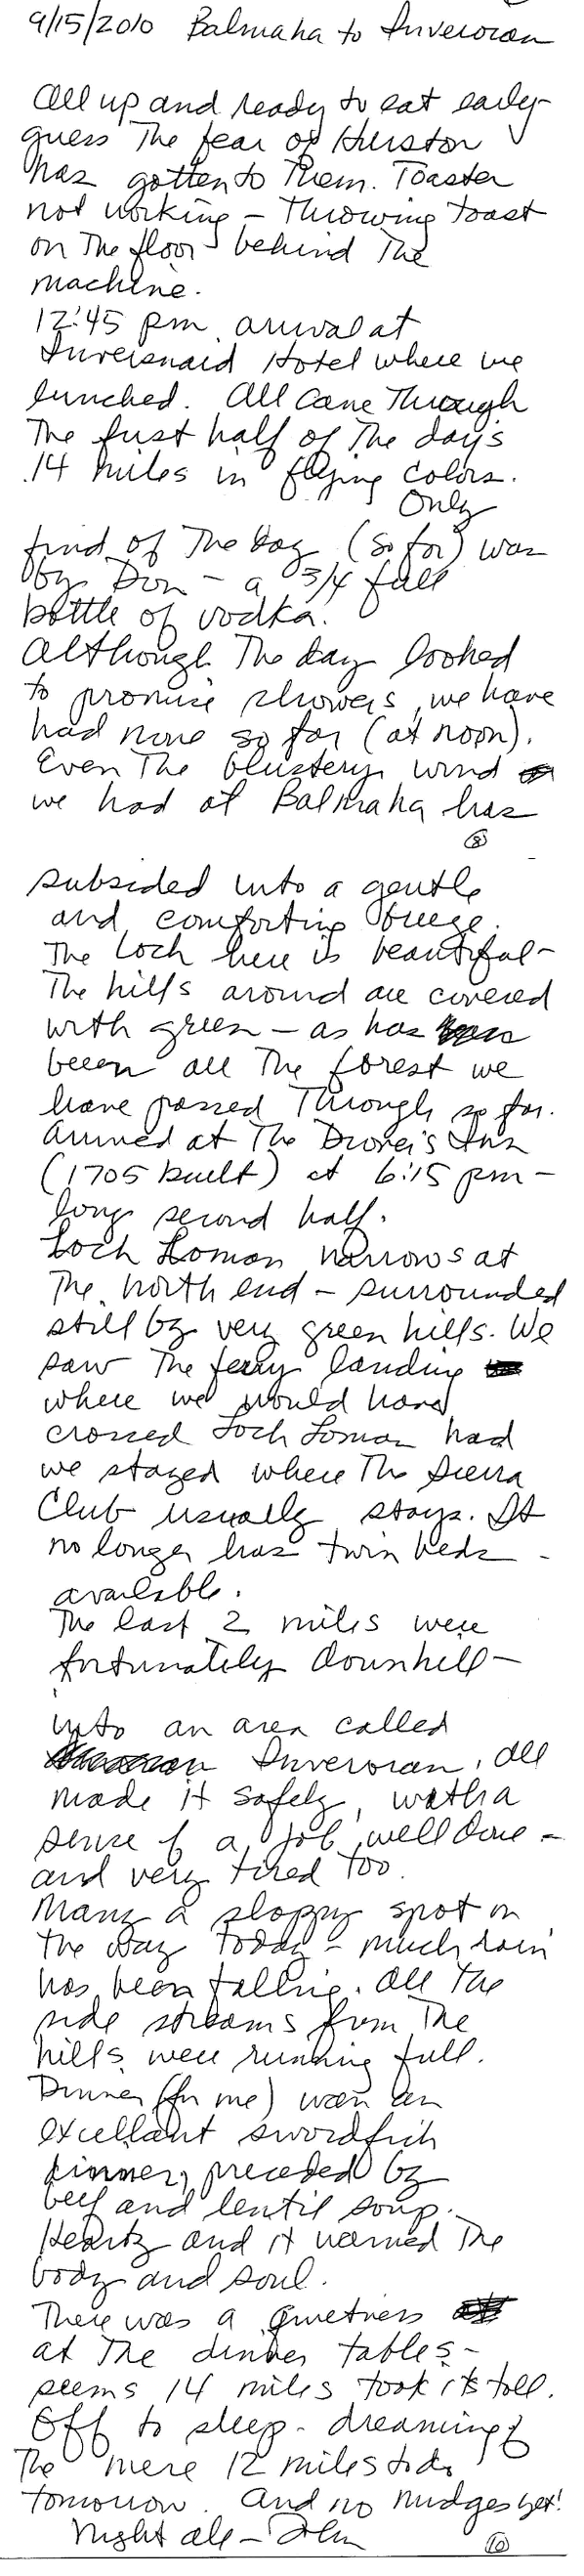 9/15/2010 Balmaha to Inveroran
All up and ready to eat early -
guess The fear of Hurston
has gotten to Them. Toaster
not working - Throwing toast
on The floor behind The
machine.
12:45 pm arrival at
Inversnaid Hotel where we
lunched. All came Through
The first half of The day's
14 miles in flying colors.
Only
find of The day (so far) was
by Don - a 3/4 full
bottle of vodka.
Although The day looked
to promise showers, we have
had none so far (at noon).
Even The blustery wind
we had at Balmaha has
8
subsided into a gentle
and comforting breeze.
The Loch here is beautiful -
The hills around are covered
with green - as has
been all The forest we
have passed Through so far.
Arrived at The Drover's Inn
(1705 built) at 6:15 pm -
long second half.
Loch Loman narrows at
The north end - surrounded
still by very green hills. We
saw The ferry landing
where we would have
crossed Loch Loman had
we stayed where The Sierra
Club usually stays. It
no longer has twin beds
available.
The last 2 miles were
fortunately downhill -
into an area called
Inveroran. All
made it safely, with a
sense of a job well done -
and very tired too.
Many a sloppy spot on
the way today - much rain
has been falling. All The
side streams from The
hills were running full.
Dinner (for me) was an
excellant swordfish
dinner, preceded by
beef and lentil soup.
Hearty and it warmed The
body and soul.
There was a quietness
at The dinner tables -
seems 14 miles took its toll.
Off to sleep - dreaming of
The mere 12 miles to do
tomorrow. And no nudges yet!
Night all - John
10